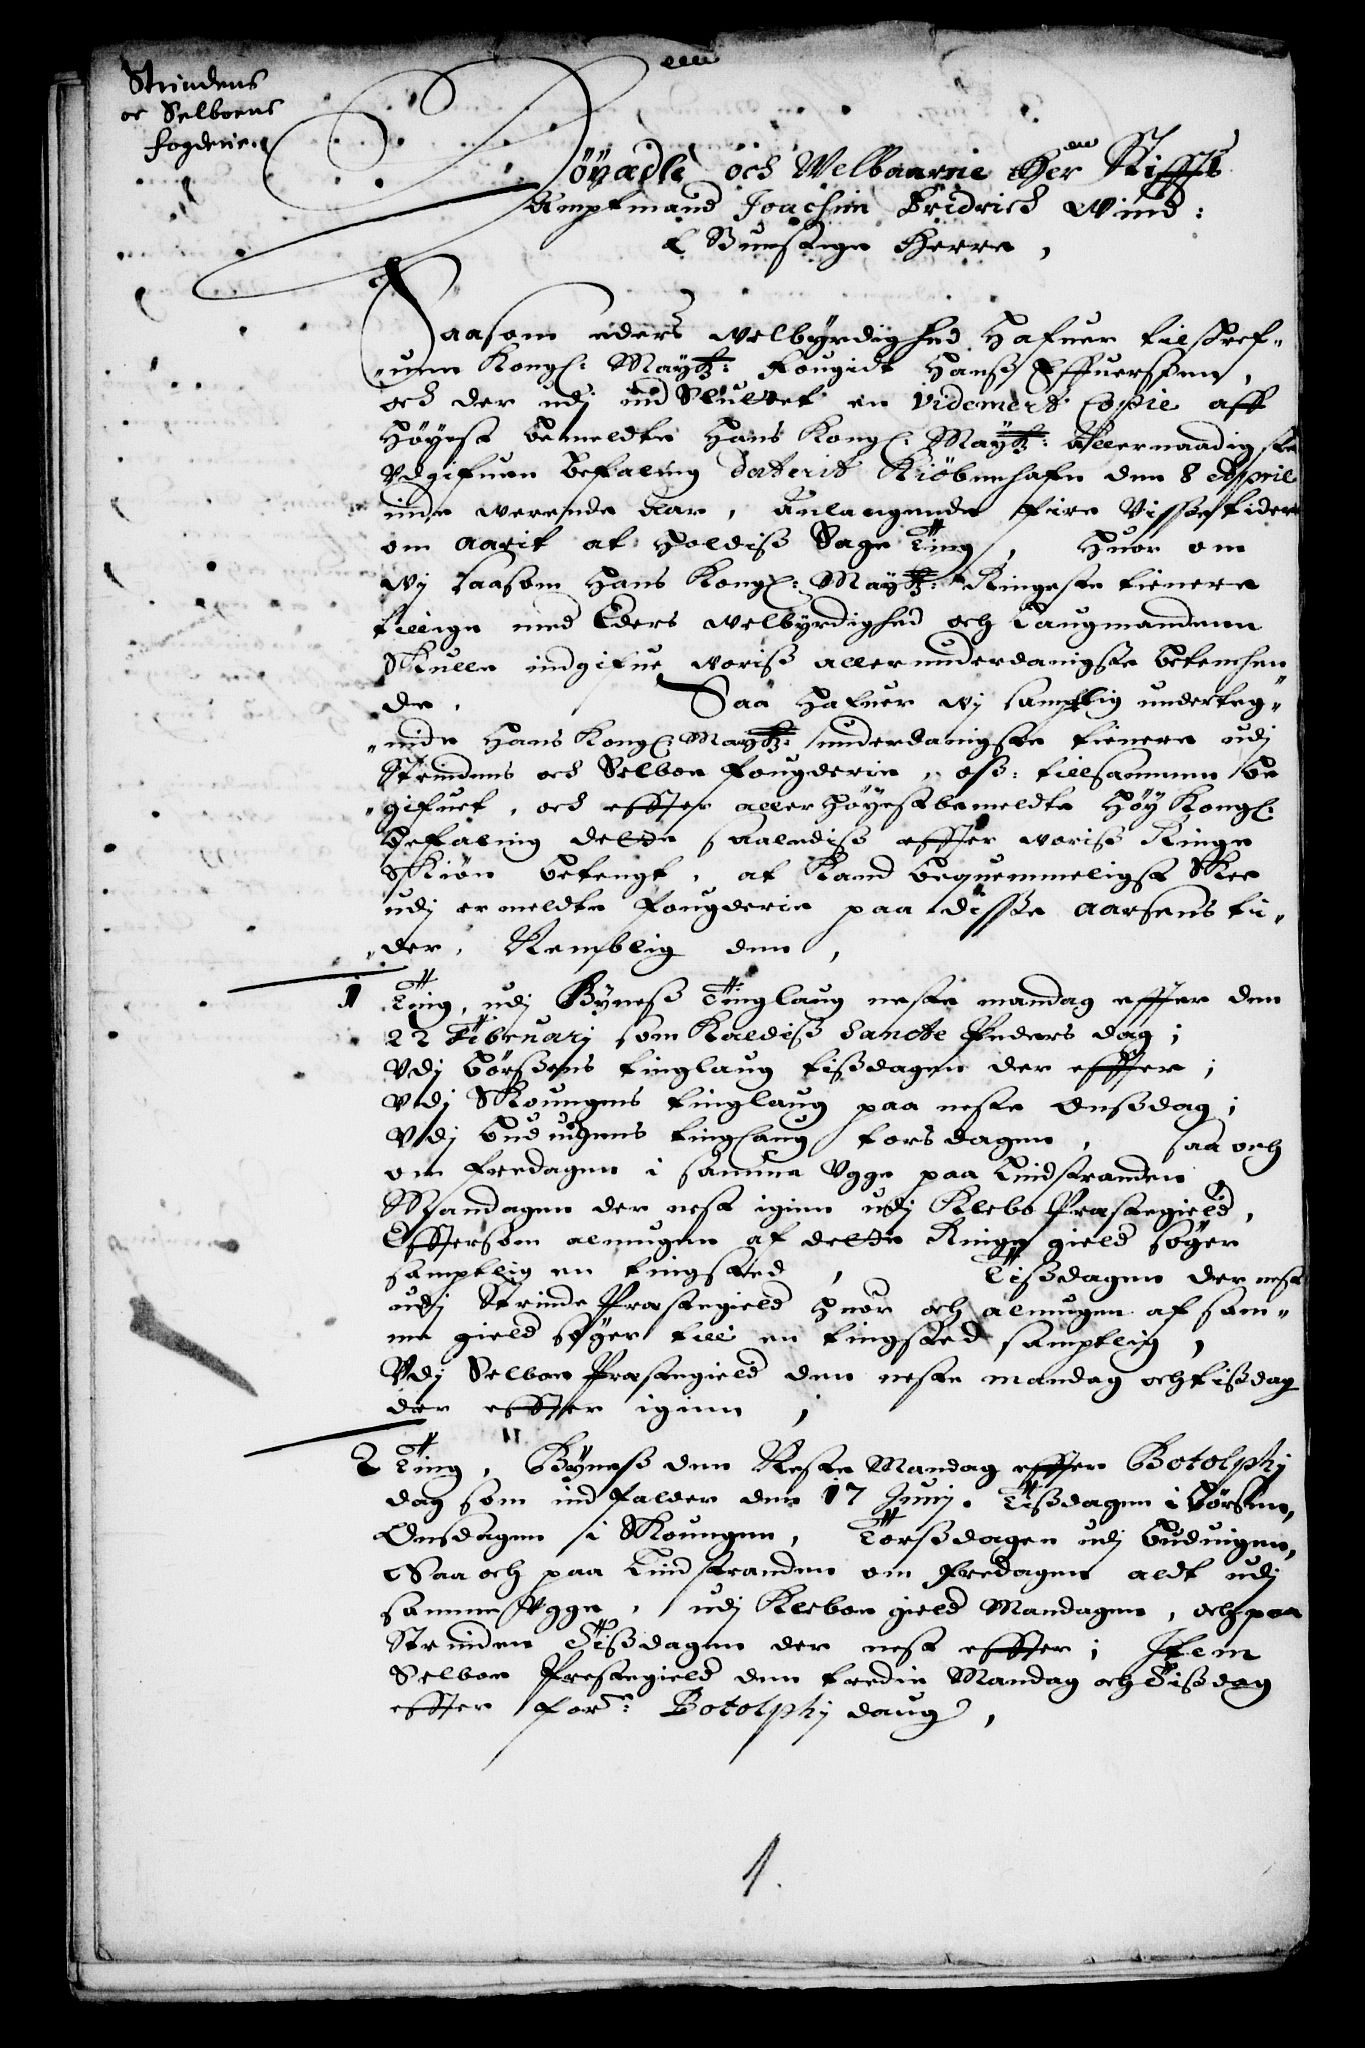 Strindens
oc Selboens
fogderie
Höÿædle och Welbaarne Her Stiffts
Amptmand Joachim Fridrich Wind:
Gunstige Herre,
Saasom eders welbÿrdighed hafuer tilskref-
"uen Kongl: Maÿtz: Fougidt Hanss Effuersen,
och der udj ind Sluttet en Videmert Copie aff
Höÿest bemeldte Hans Kongl: Maÿtz: allernaadigste
Udgifuen befaling daterit Kiöbenhafn den 8 April
inde werende Aar, Anlangende fire Visse tider
om Aarit at holdiss Sage Ting, huor om
wj saasom Hans Kongl: Maÿtz: Ringeste tienere
tillige med Eders welbÿrdighed och Laugmanden
Skulle indgifue woriss allerunderdanigste betenchen
de. Saa hafuer wj samptlig underteg"
"nede Hans Kongl: Maÿtz: underdanigste tienere udj
Strindens och Selboe fougderie, oss tillsammen be
"gifuet, och effter allerhöÿestbemeldte Höÿ Kongl:
befaling dette saalediss effter woriss Ringe
Skiön betengt, at Kand bequemmeligst Skee
udj ermeldte fougderie paa disse aarsens ti"
"der, Nemblig den,
1 Ting, udj Bÿness Tinglaug neste mandag effter den
22 Februarj som Kaldiss Sancte Peders dag;
Udj Börssens tinglaug tissdagen der effter;
Udj Skoungens tinglaug paa neste Onssdag;
Udj Buduigens tinglaug torsdagen, saa och
om fredagen i samme Ugge paa Lindstranden
Mandagen der nest igien udj Klebo Præstegield,
Effersom almugen af dette Ringe gield söger
samptlig en tingsted, Tissdagen der nest
udj Strinde Præstegield huor och almugen af sam"
me gield söger till en tingsted samptlig,
Udj Selboe Præstegield den neste mandag och tissdag
der effter igien,
2 Ting, Bÿness den Neste Mandag effter Botolphj
dag som ind falder den 17 Junij. Tissdagen i Börsen,
Onsdagen i Skoungen, Torssdagen udj Buduigen,
Saa och paa Lindstranden om fredagen aldt udj
samme Ugge, udj Kleboe gield Mandagen, och paa
Strinden Tissdagen der nest effter; Item
Selboe Prestegield den tredie Mandag och Tissdag
effter for: Botolphj daug,
1.